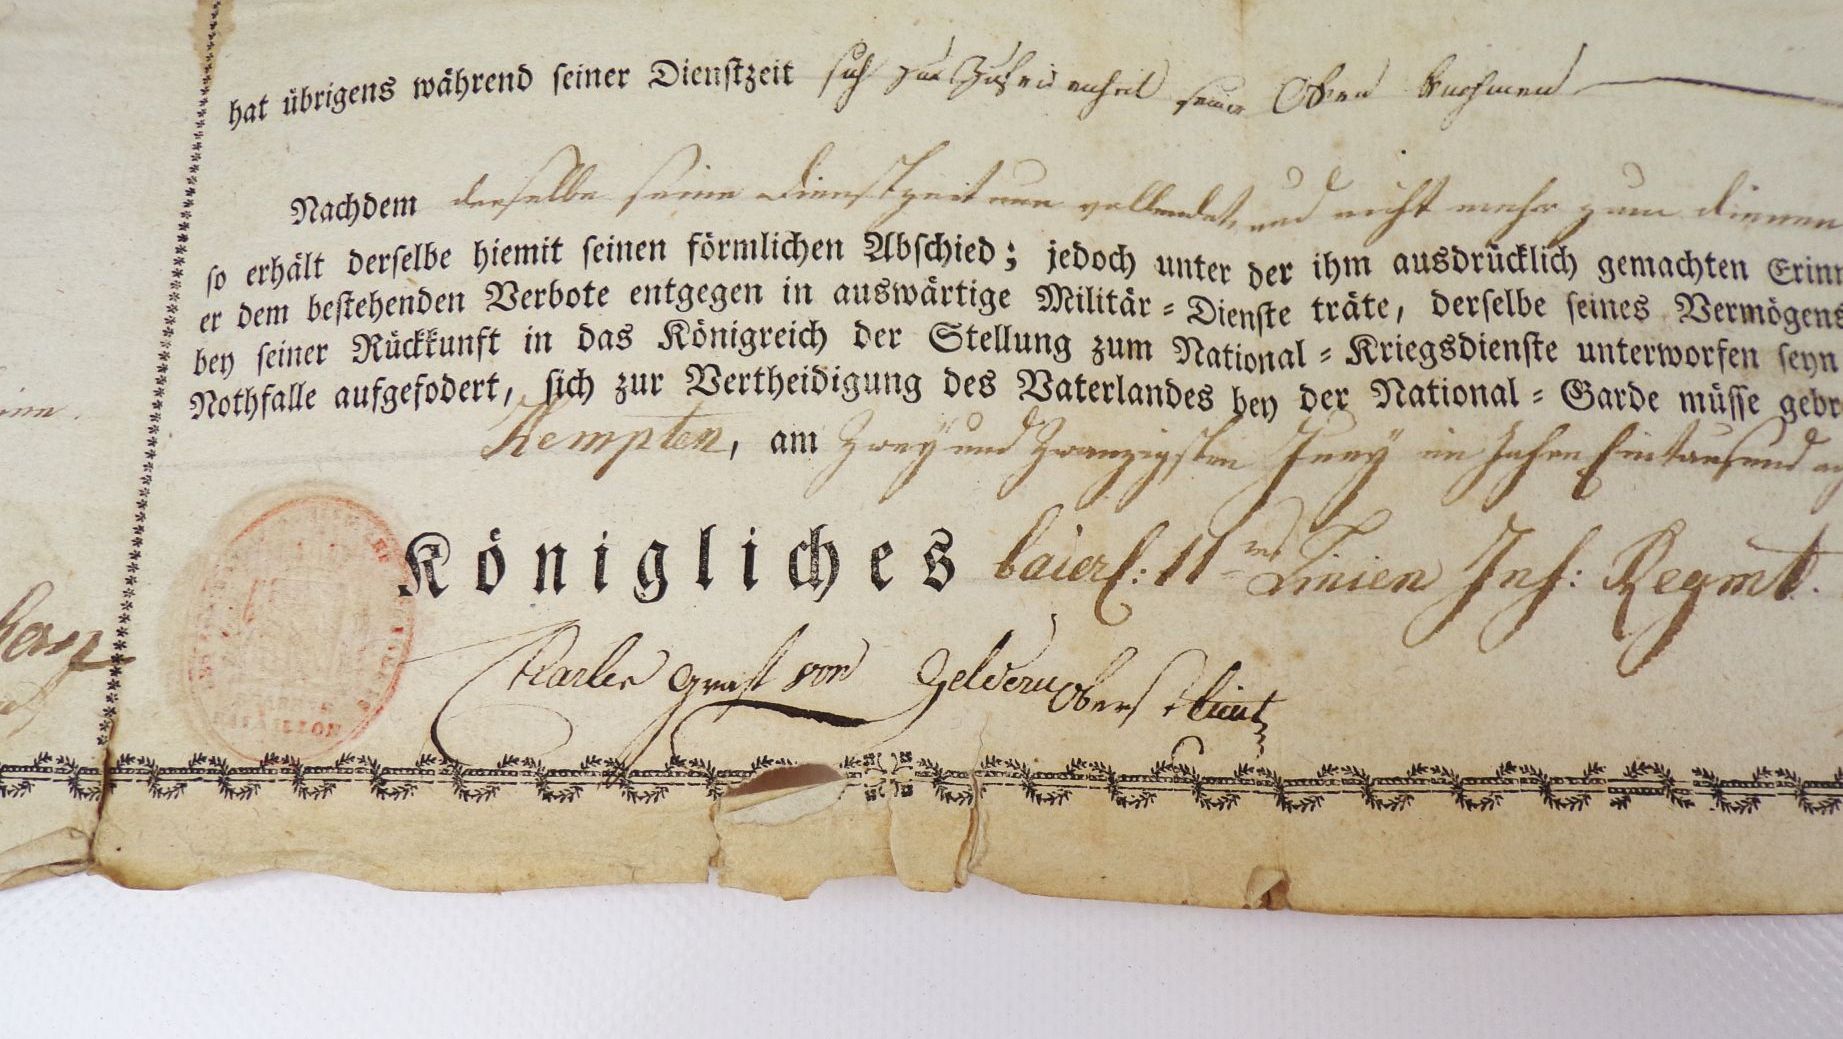 hat übrigens während seiner Dienstzeit sich zur Zufriedenheit seiner Obern
Nachdem derselbe seine Dienstzeit nun vollendet, und nicht mehr zum dienen
so erhält derselbe hiemit seinen förmlichen Abschied; jedoch unter der ihm ausdrücklich gemachten Erinn
er dem bestehenden Verbote entgegen in auswärtige Militär-Dienste träte, derselbe seines Vermögens
bey seiner Rückkunft in das Königreich der Stellung zum National-Kriegsdienste unterworfen seyn
Nothfalle aufgefodert, sich zur Vertheidigung des Vaterlandes bey der National-Garde müsse gebr
Kempten, am Zwey und Zwanzigsten Juny im Jahre Eintausend
Königliches baier: 11 Linien Inf: Regmt.
Graf von Geldern Oberstlieut
BATAILLON